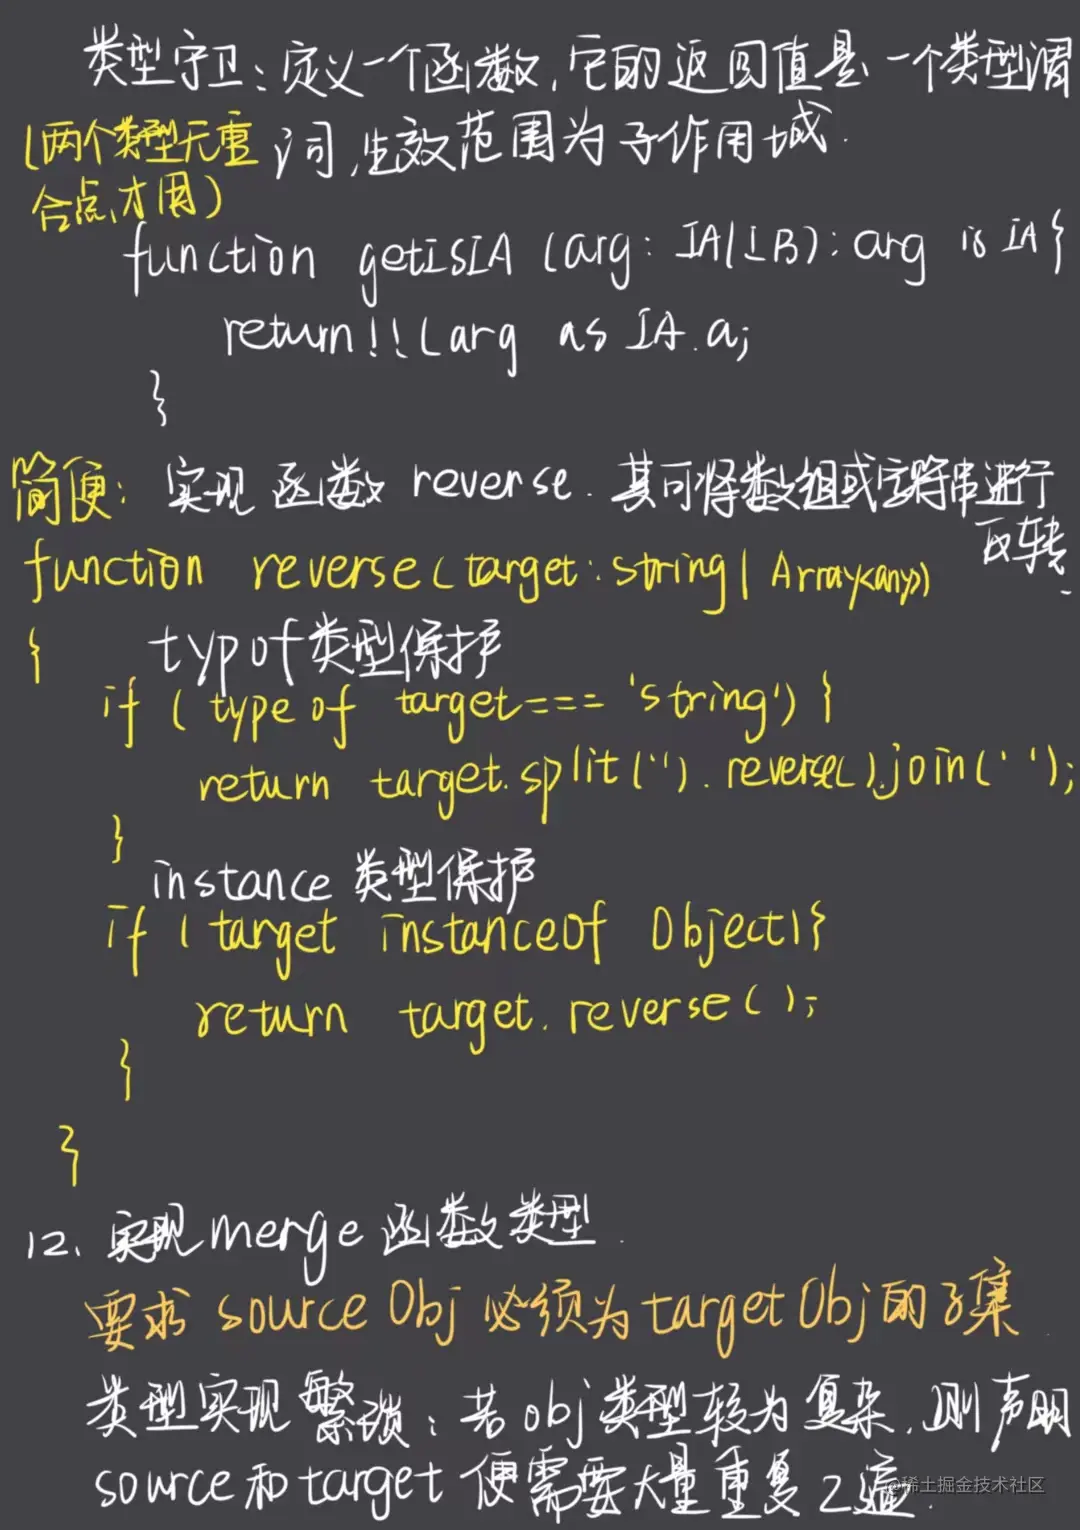 类型守卫：定义一个函数，它的返回值是一个类型谓
词，生效范围为子作用域.
(两个类型无重
合点,才用)
function getIsIA (arg: IA|IB): arg is IA{
return!!(arg as IA.a;
}
简便： 实现函数 reverse. 其可将数组或字符串进行
反转.
function reverse(target:string| Array<any>)
{ typof类型保护
if ( typeof target=== 'string') {
return target.split('').reverse().join('');
}
instance 类型保护
if ( target instanceof Object){
return target.reverse();
}
}
12、实现merge函数类型.
要求 sourceObj必须为targetObj的子集
类型实现繁琐：若obj类型较为复杂,则声明
source和target便需要大量重复2遍.
@稀土掘金技术社区